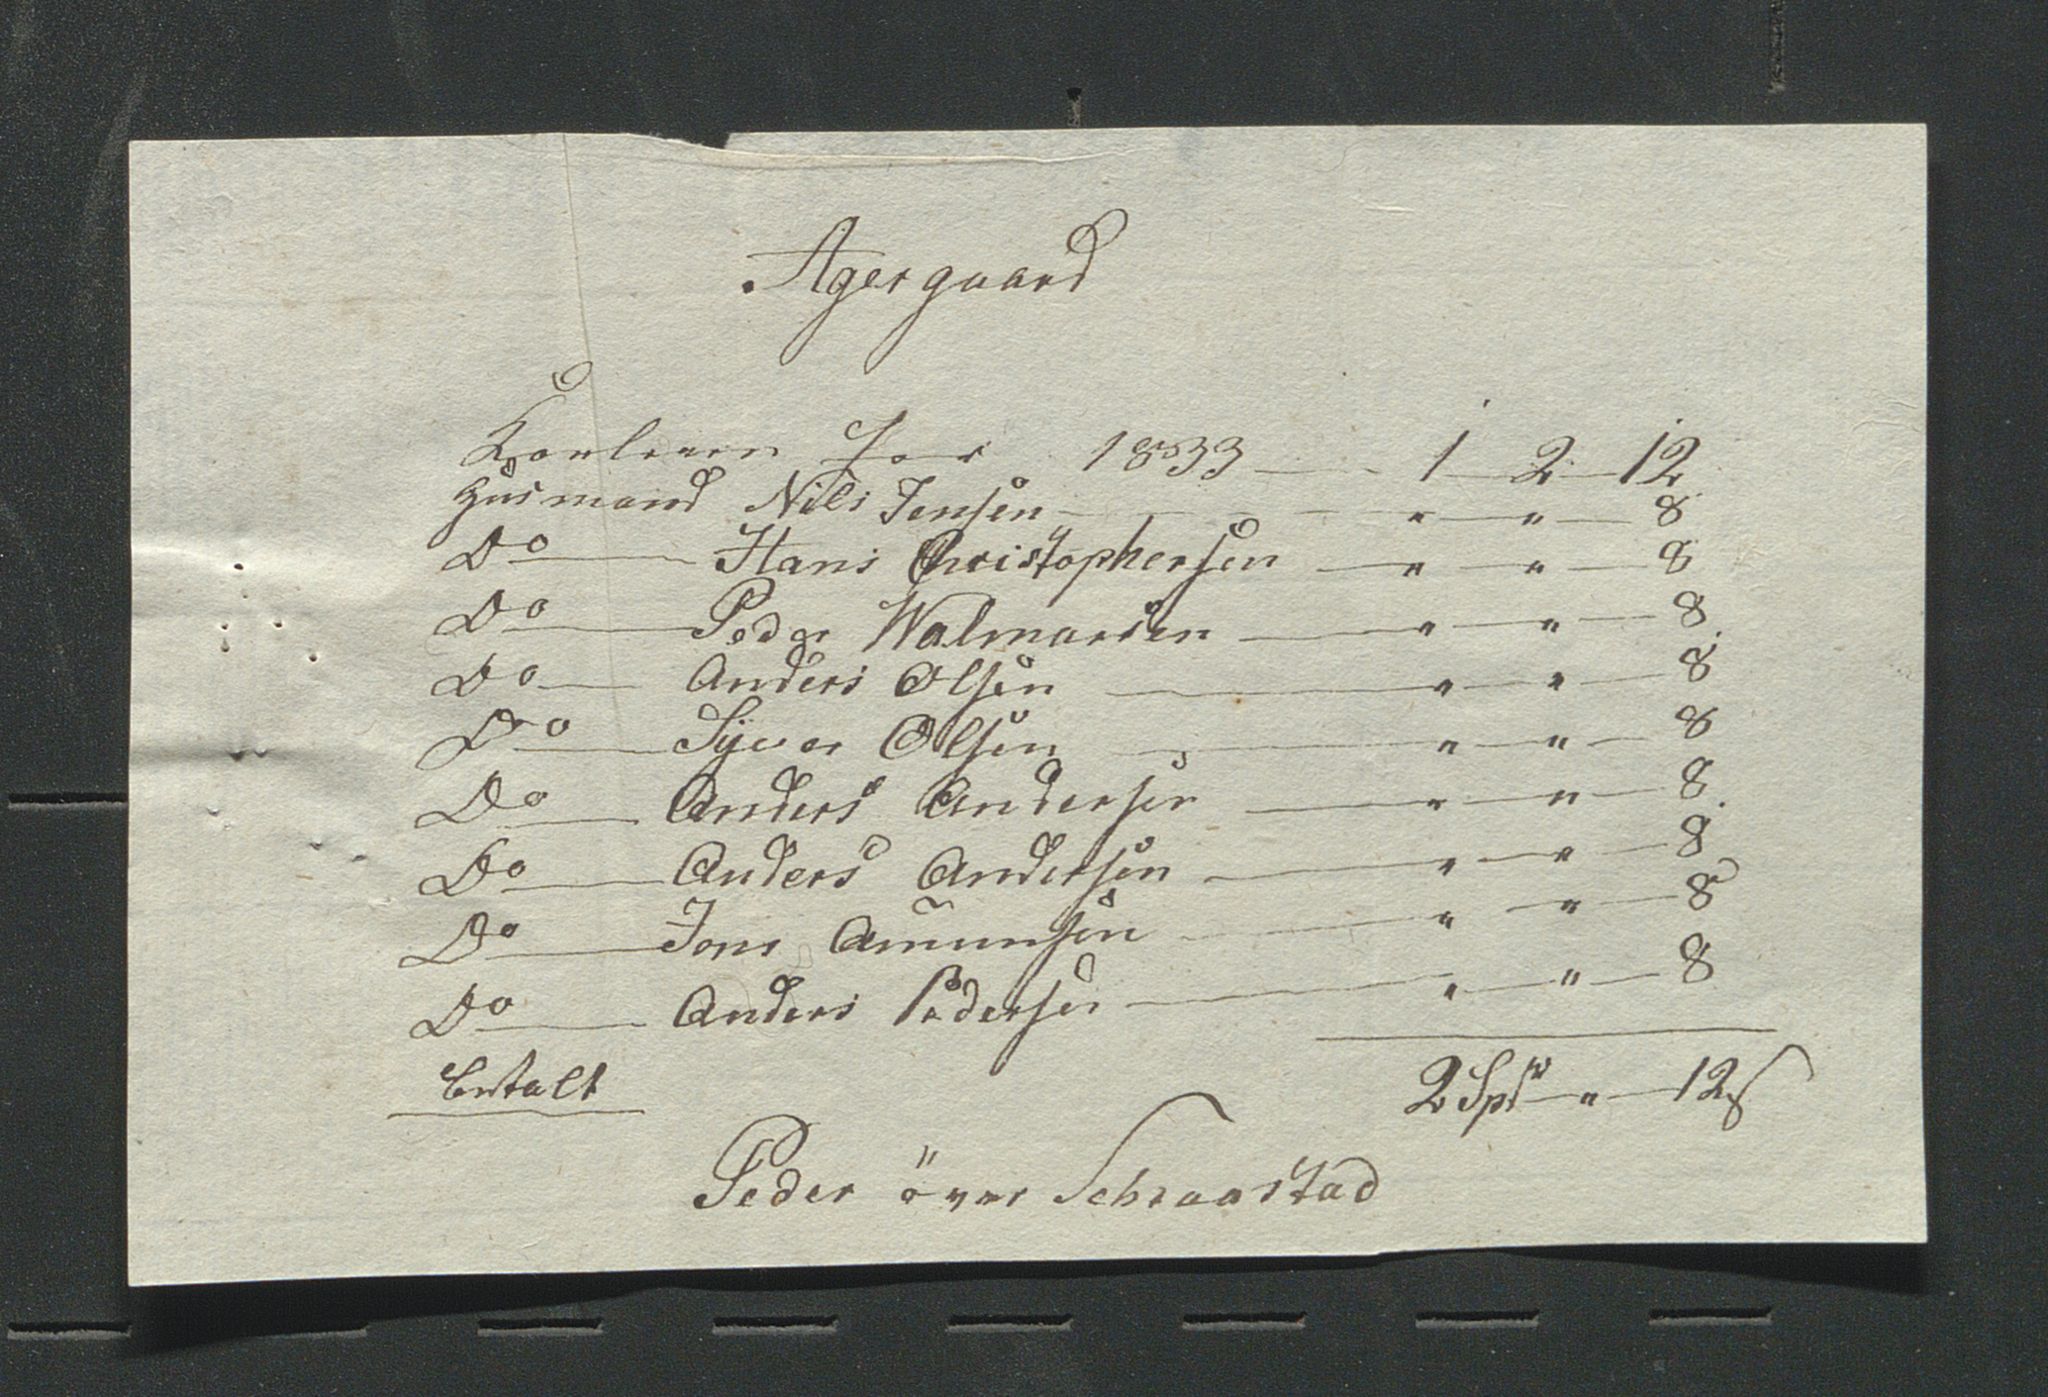 Agergaard
Kornleien for 1833 — 1 — 2 — 12
Husmand Nils Jensen — " — " — 8
Do — Hans Christophersen — " " — 8
Do — Peder Walmarsen — " — " — 8
Do — Anders Olsen — " — " — 8
Do — Syver Olsen — " — " — 8
Do — Anders Andersen — " — " — 8
Do — Anders Andersen — " — " — 8
Do — Jons Amunsen — " — " — 8
Do — Anders Pedersen — " — " — 8
betalt 2 Spd — " — 12 s
Peder över Schraastad